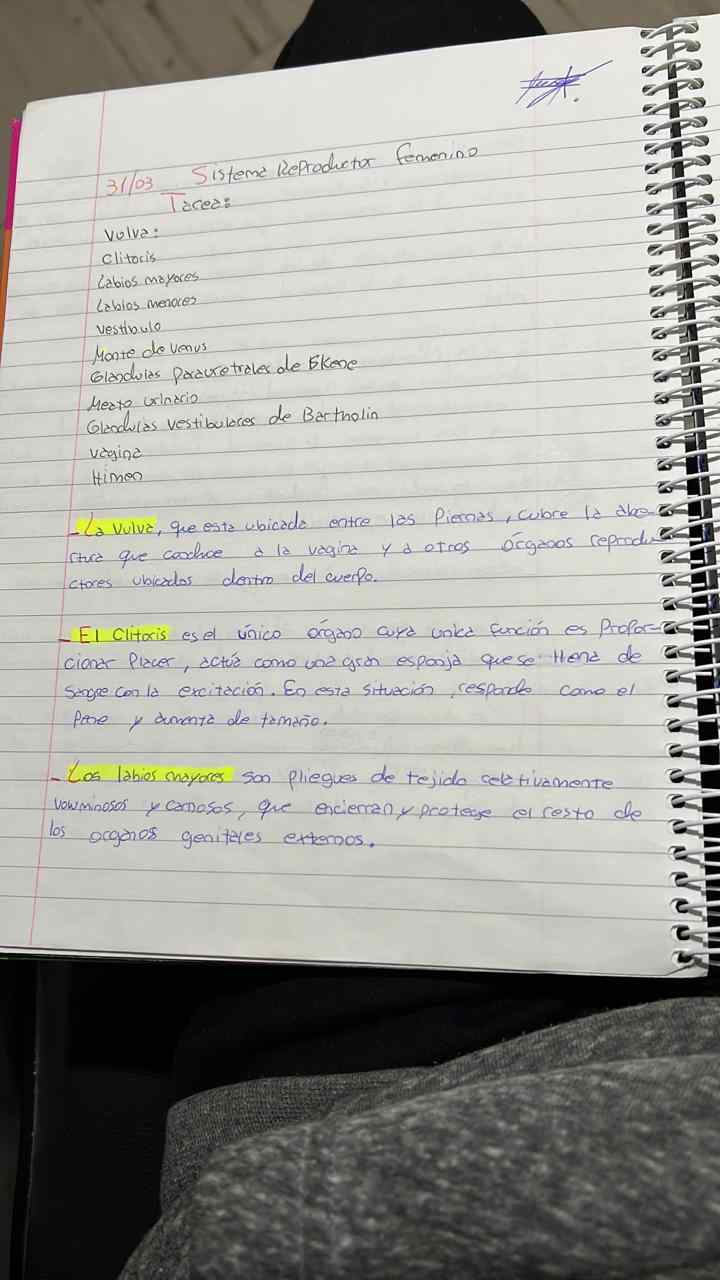 31/03 Sistema Reproductor femenino
Tarea:
Vulva:
Clitoris
Labios mayores
Labios menores
Vestibulo
Monte de Venus
Glandulas parauretrales de Skene
Meato urinario
Glandulas vestibulares de Bartholin
Vagina
Himen
- La Vulva, que esta ubicada entre las Piernas, cubre la abe-
rtura que conduce a la vagina y a otros órganos reprodu-
ctores ubicados dentro del cuerpo.
- El Clitoris es el único órgano cuya unica función es Propor-
cionar Placer, actúa como una gran esponja que se llena de
Sangre con la excitación. En esta situación, responde como el
Pene y aumenta de tamaño.
- Los labios mayores son pliegues de tejido relativamente
voluminosos y carnosos, que encierran y protege el resto de
los organos genitales externos.